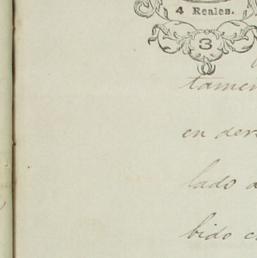 4 Reales.
3
tamen
en der
lado a
bido c